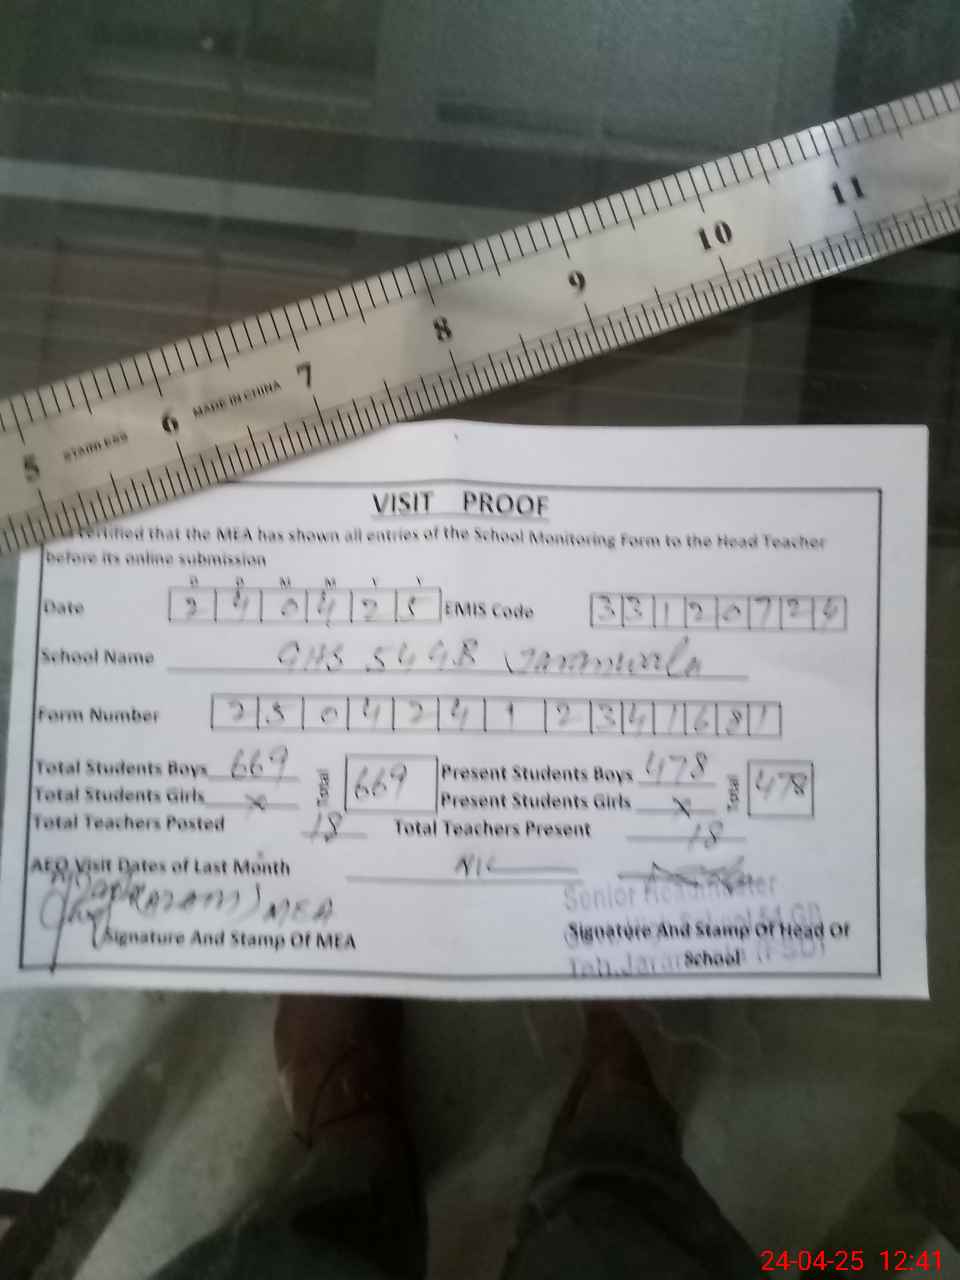 5 6 7 8 9 10 11
STAINLESS MADE IN CHINA
VISIT PROOF
certified that the MEA has shown all entries of the School Monitoring Form to the Head Teacher
before its online submission
D D M M Y Y
Date 2 4 0 4 2 5 EMIS Code 3 3 1 2 0 7 2 4
School Name GHS 54 GB Jaranwala
Form Number 2 5 0 4 2 4 1 2 3 4 1 6 8 1
Total Students Boys 669 Total 669 Present Students Boys 478 Total 478
Total Students Girls x Present Students Girls x
Total Teachers Posted 18 Total Teachers Present 18
AEO Visit Dates of Last Month NIL
MEA
Senior Headmaster
Signature And Stamp Of MEA
Signature And Stamp Of Head Of
School
24-04-25 12:41